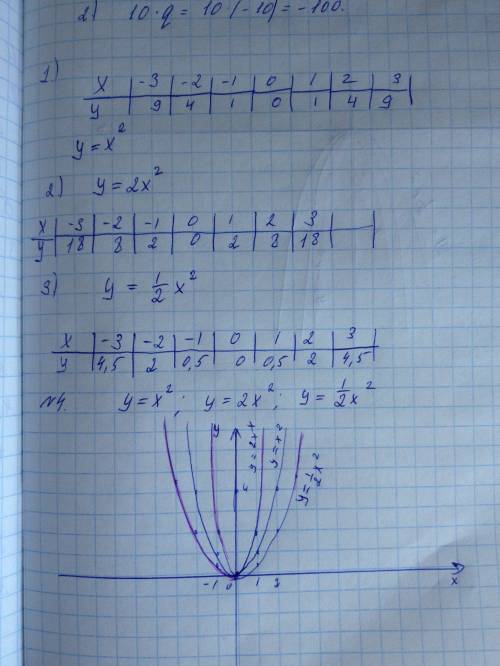 2) 10·q = 10·(-10) = -100.
1)
x | -3 | -2 | -1 | 0 | 1 | 2 | 3
y | 9 | 4 | 1 | 0 | 1 | 4 | 9
y = x²
2) y = 2x²
x | -3 | -2 | -1 | 0 | 1 | 2 | 3
y | 18 | 8 | 2 | 0 | 2 | 8 | 18
3) y = 1/2 x²
x | -3 | -2 | -1 | 0 | 1 | 2 | 3
y | 4,5 | 2 | 0,5 | 0 | 0,5 | 2 | 4,5
№4. y = x²; y = 2x²; y = 1/2 x²
y
y = 2x²
y = x²
y = 1/2 x²
-1 0 1 2 x